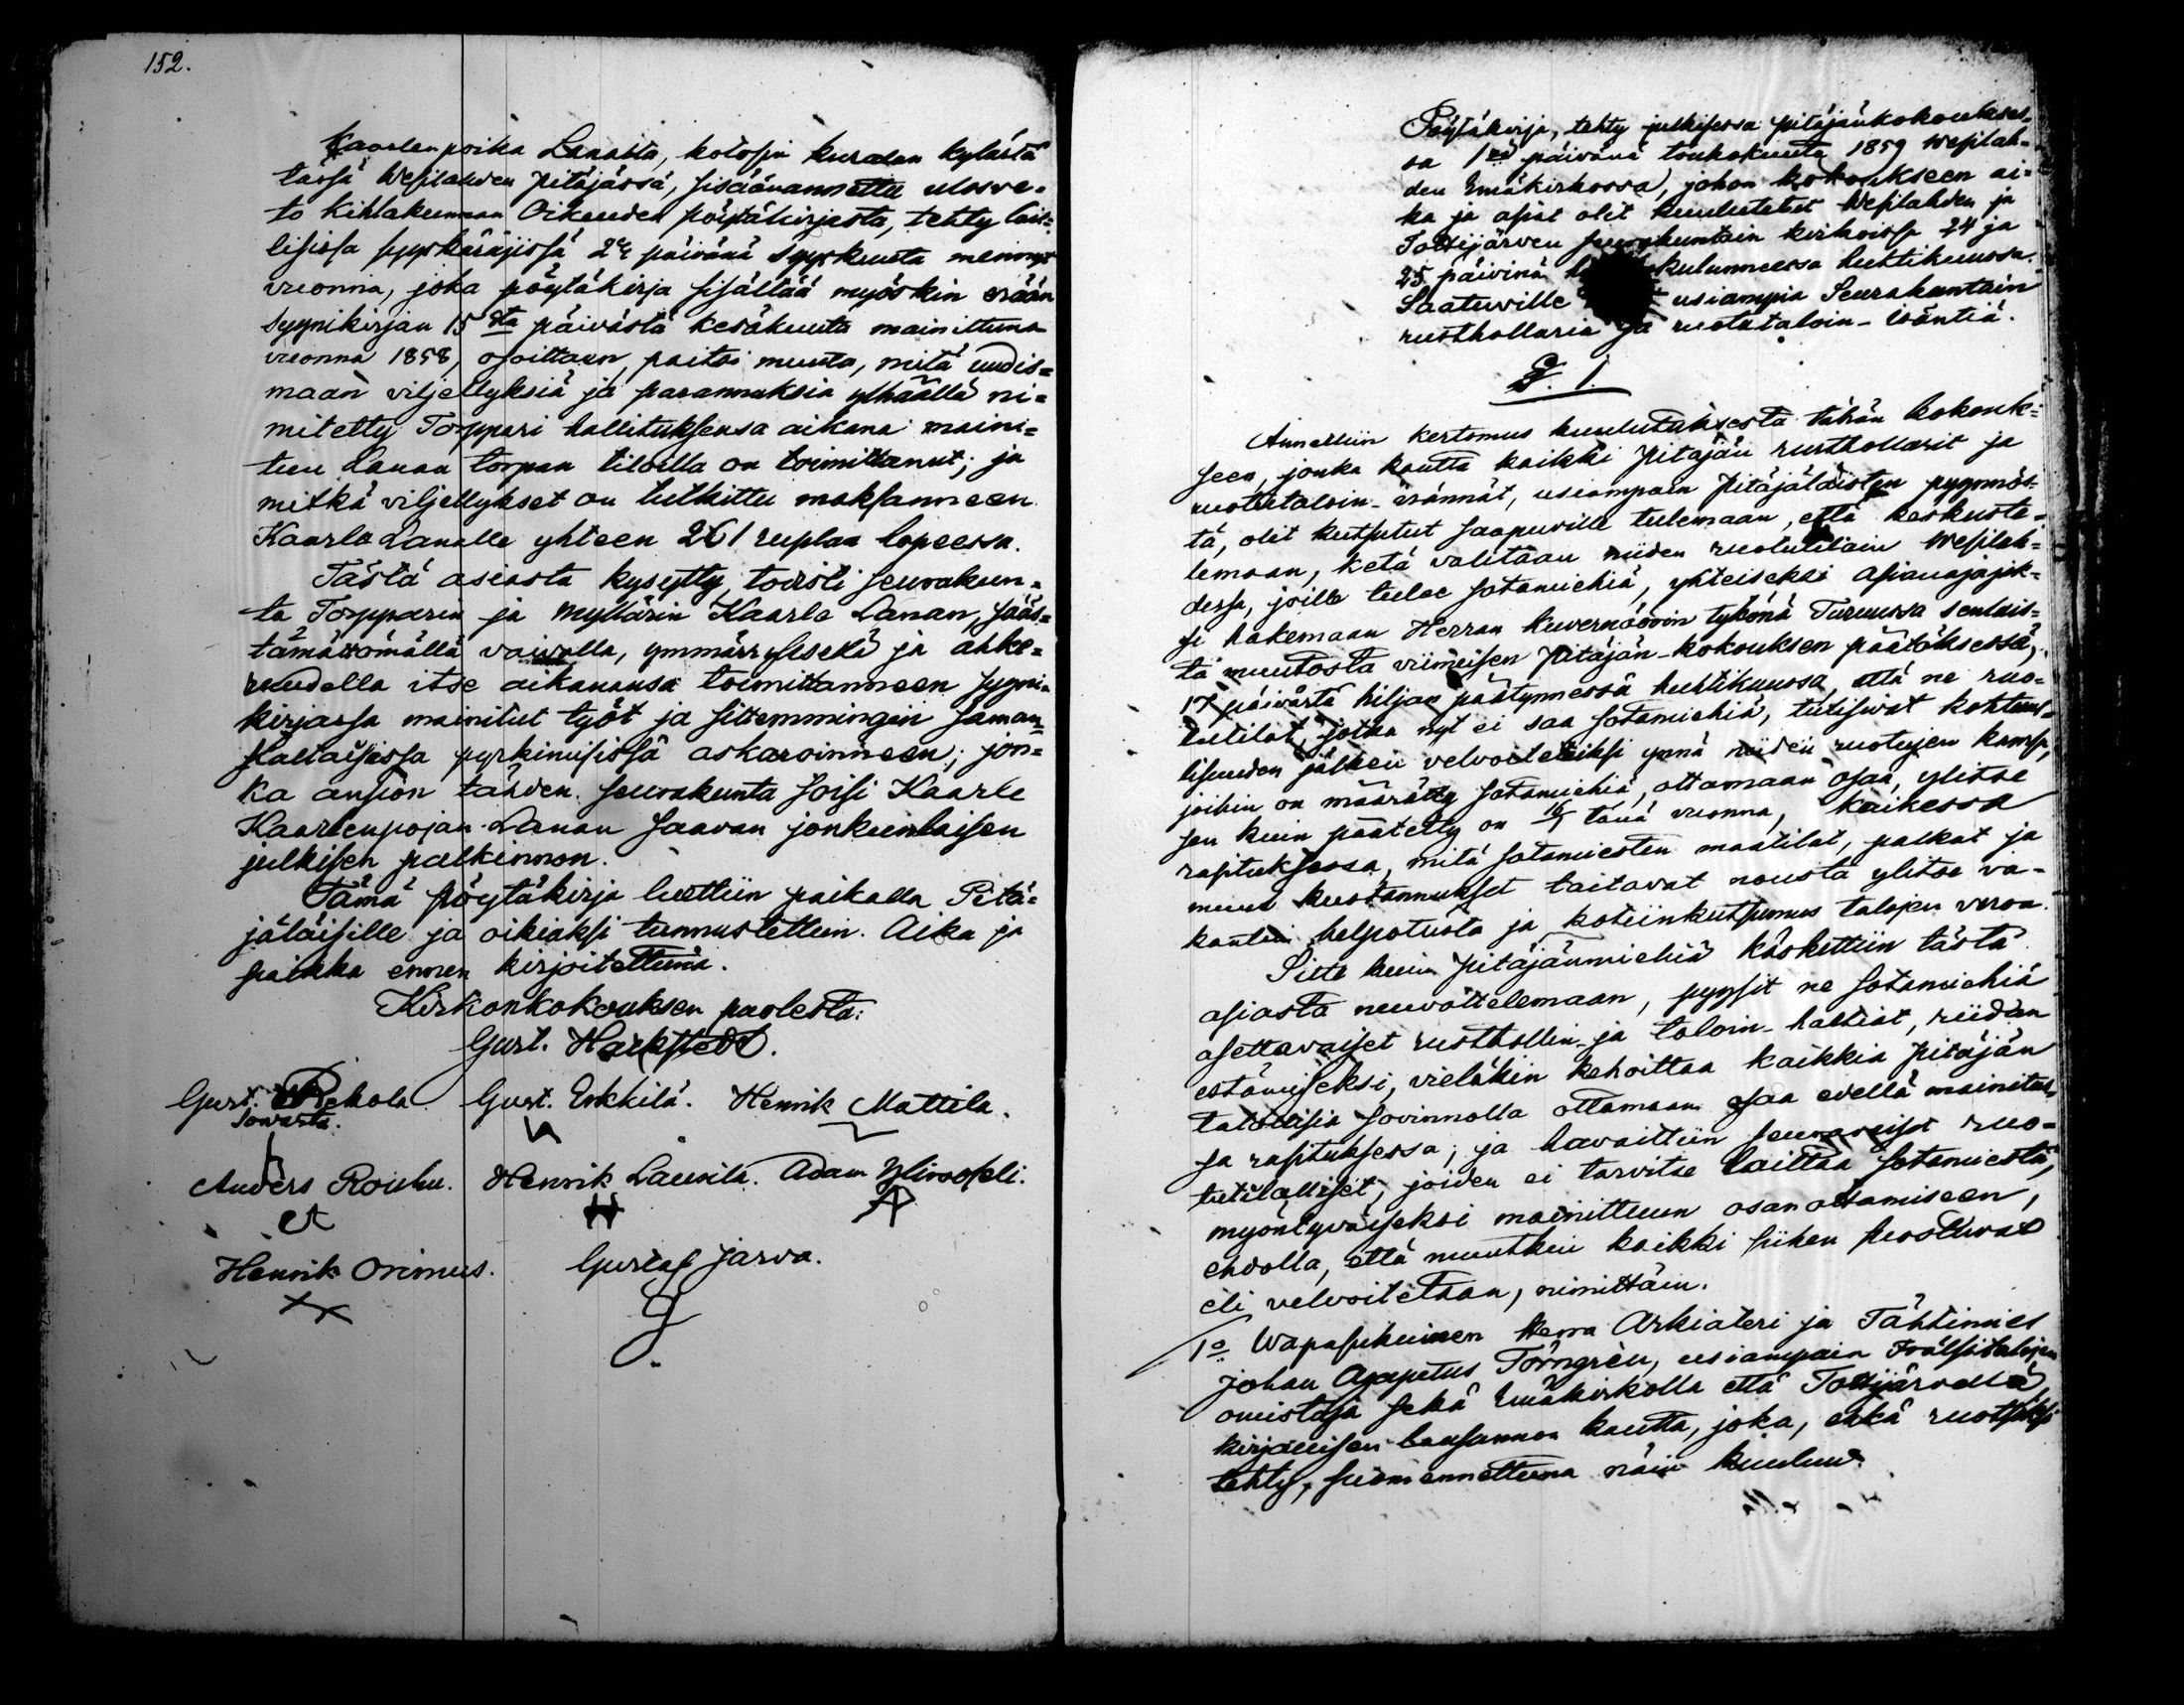 152.
Kaarlenpoika Lanasta, kotosin Kuralan kylästä
tässä Wesilahden Pitäjässä, sisäänannettu ulosve-
to Kihlakunnan Oikeuden pöytäkirjasta, tehty lail-
lisissa syyskäräjissä päivänä Syyskuuta mennynä
vuonna, joka pöytäkirja sisältää myöskin erään
Syynikirjan 15sta päivästä kesäkuuta mainittuna
vuonna 1858, osoittaen, paitsi muuta, mitä uudis-
maan viljellyksiä ja parannuksia ylhäällä ni-
mitetty Torppari hallituksensa aikana maini-
tun Lanan torpan tiloilla on toimittanut; ja
mitkä viljellykset on tutkittu maksanneen
Kaarle Lanalle yhteen 261 ruplaa hopeessa.
Tästä asiasta kysytty, todisti seurakun-
ta Torpparin ja Myllärin Kaarle Lanan, sääs-
tämättömällä vaivalla, ymmärryksellä ja ahke-
ruudella itse aikanansa toimittanneen Syyni-
kirjassa mainitut työt ja sittemmingin saman-
kaltaisissa pyrkimisissä askaroinneen; jon-
ka ansion tähden seurakunta soisi Kaarle
Kaarlenpojan Lanan saavan jonkunlaisen
julkisen palkinnon.
Tämä pöytäkirja luettiin paikalla Pitä-
jäläisille ja oikiaksi tunnustettiin. Aika ja
paikka ennen kirjoitettuna.
Kirkonkokouksen puolesta:
Gust.
Gust. Rekola Gust. Erkkilä. Henrik Mattila.
Sowasta.
Anders Rouhu. Henrik Laurila. Adam
Henrik Onimus. Gustaf Jarva.
Pöytäkirja, tehty julkisessa pitäjänkokoukses-
sa 1nä päivänä toukokuuta 1859 Wesilah-
den Emäkirkossa, johon kokoukseen ai-
ka ja asiat olit kuulutetut Wesilahden ja
Tottijärven seurakuntain kirkoissa 24 ja
25 päivinä kulunneessa huhtikuussa.
Saatuville usiampia Seurakuntain
rusthollaria ja ruotutaloin-isäntiä.
§. 1.
Annettiin kertomus kuulutuksesta tähän kokouk-
seen, jonka kautta kaikki Pitäjän rusthollarit ja
ruotutaloin-isännät, usiampain Pitäjäläisten pyynnös-
tä, olit kutsutut saapuville tulemaan, että keskuste-
lemaan, ketä valitaan niiden ruotutiloin Wesilah-
dessa, joille tulee sotamiehiä, yhteiseksi asianajajak-
si hakemaan Herran Kuvernöörin tykönä Turuussa senlais-
ta muutosta viimeisen Pitäjän-kokouksen päätöksessä,
17 päivästä hiljan päättynnessä huhtikuussa, että ne ruo-
tutilat, jotka nyt ei saa sotamiehiä, tulisivat kohtuul-
lisuuden jälkeen velvoitetuiksi ynnä niiden ruotujen kanssa,
joihin on määrätty sotamiehiä, ottamaan osaa, ylitse
sen kuin päätetty on tänä vuonna, kaikessa
rasituksessa, mitä sotamiesten maatilat, palkat ja
muut kustannukset taitavat nousta ylitse va-
kantin helpotusta ja kotiinkutsumus talojen veroa.
Siitte kuin Pitäjänmiehiä käskettiin tästä
asiasta neuvottelemaan, pyysit ne sotamiehiä
asettavaiset rusthollin- ja taloin-haltiat, riidan
estämiseksi, vieläkin kehoittaa kaikkia Pitäjän
talollisia sovinnolla ottamaan osaa edellä mainitus-
sa rasituksessa; ja havaittiin seuravaiset ruo-
tutilalliset, joiden ei tarvitse laittaa sotamiestä,
myöntyväiseksi mainittuun osanottamiseen,
ehdolla, että muutkin kaikki siihen suostuvat
eli velvoitetaan, nimittäin.
1o Wapasukuinen Herra Arkiateri ja Tähtimies
Johan Agapetus Törngrén, usiampain Frälsitalojen
omistaja sekä Emäkirkolla että Tottijärvellä,
kirjallisen lausunnon kautta, joka, ehkä ruotsiksi
tehty, suomennettuna näin kuuluu.